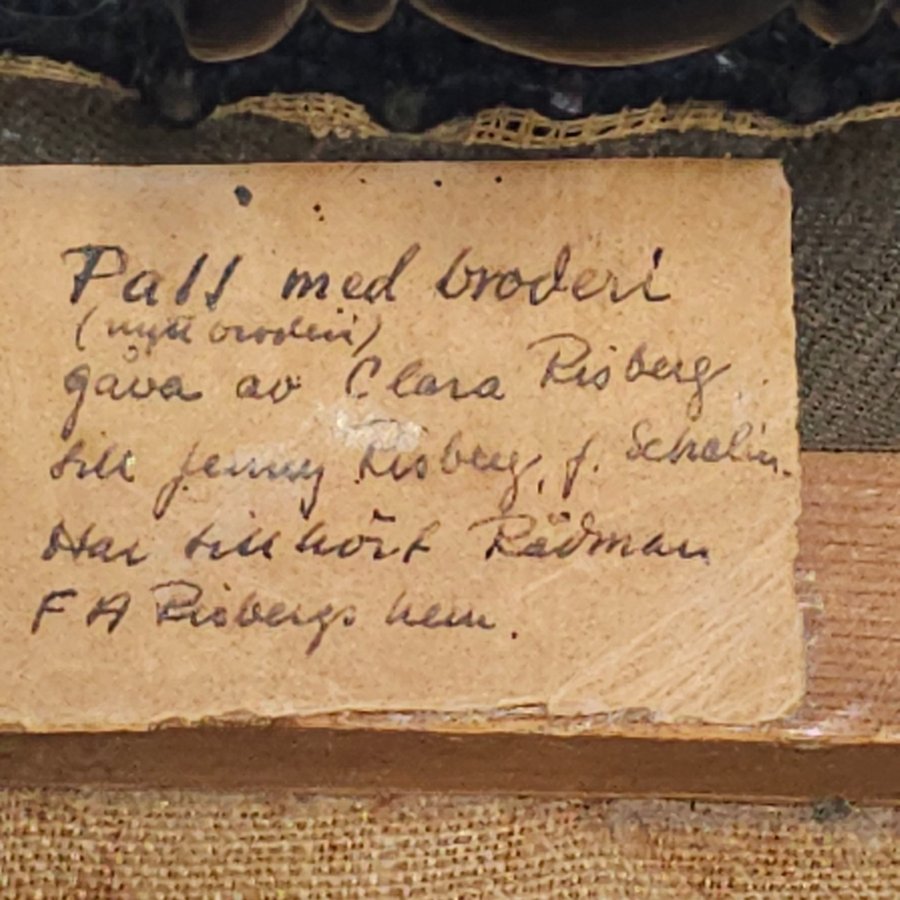 Pall med broderi
(nytt broderi)
gåva av Clara Risberg
till Jenny Risberg, f. Schelin.
Har tillhört Rådman
F A Risbergs hem.